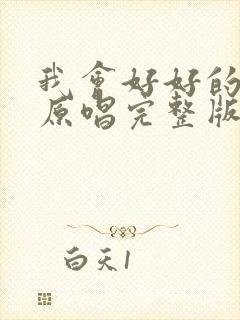 我會好好的
原唱完整版
白天1